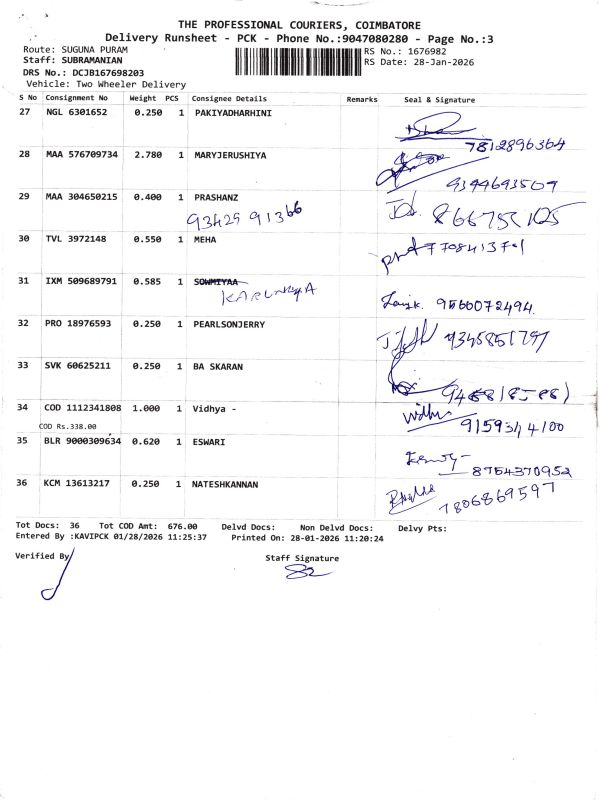 THE PROFESSIONAL COURIERS, COIMBATORE
Delivery Runsheet - PCK - Phone No.:9047080280 - Page No.:3
Route: SUGUNA PURAM
RS No.: 1676982
Staff: SUBRAMANIAN
RS Date: 28-Jan-2026
DRS No.: DCJB167698203
Vehicle: Two Wheeler Delivery
S No Consignment No Weight PCS Consignee Details Remarks Seal & Signature
27 NGL 6301652 0.250 1 PAKIYADHARHINI
7812896364
28 MAA 576709734 2.780 1 MARYJERUSHIYA
9344693509
29 MAA 304650215 0.400 1 PRASHANZ
93429 91366
30 TVL 3972148 0.550 1 MEHA
31 IXM 509689791 0.585 1 SOWMIYAA
9566072494
32 PRO 18976593 0.250 1 PEARLSONJERRY
9345851797
33 SVK 60625211 0.250 1 BA SKARAN
34 COD 1112341808 1.000 1 Vidhya -
COD Rs.338.00
9159344100
35 BLR 9000309634 0.620 1 ESWARI
8754370952
36 KCM 13613217 0.250 1 NATESHKANNAN
7806869597
Tot Docs: 36 Tot COD Amt: 676.00 Delvd Docs: Non Delvd Docs: Delvy Pts:
Entered By :KAVIPCK 01/28/2026 11:25:37 Printed On: 28-01-2026 11:20:24
Verified By Staff Signature